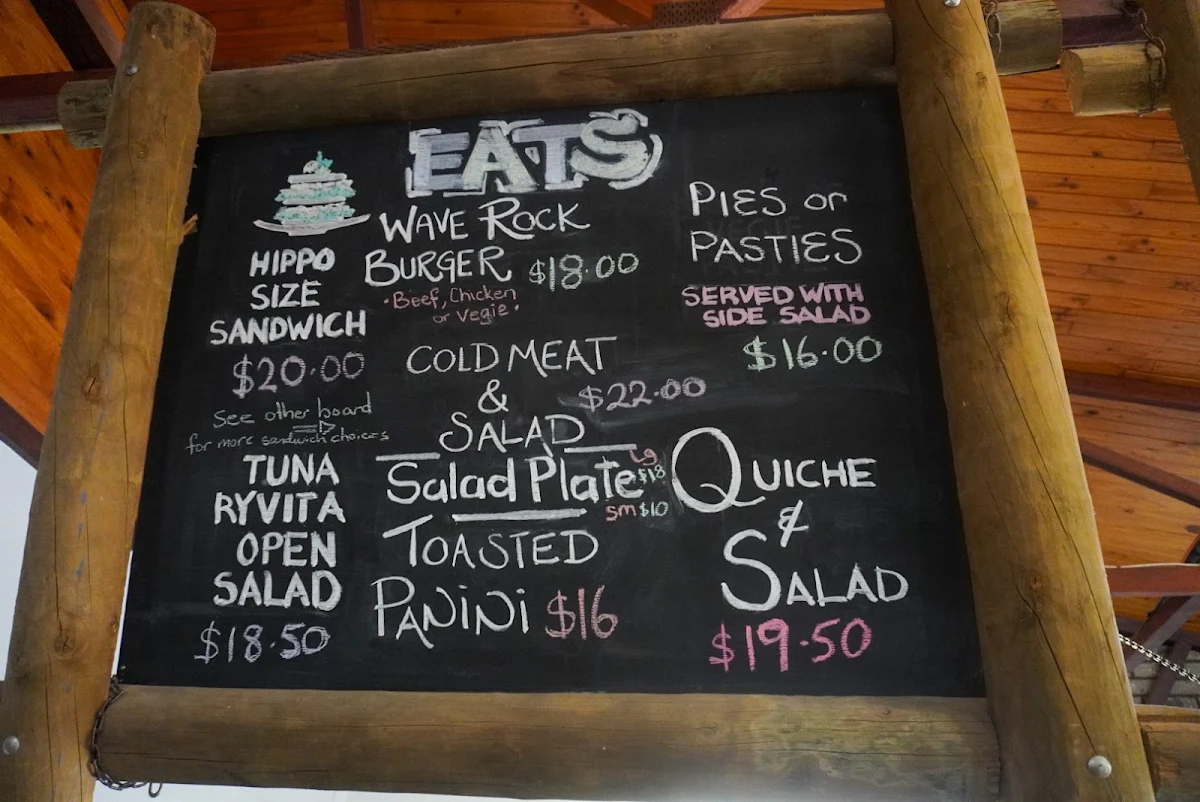 EATS
HIPPO
SIZE
SANDWICH
$20.00
See other board
for more sandwich choices
TUNA
RYVITA
OPEN
SALAD
$18.50
WAVE ROCK
BURGER $18.00
• Beef, Chicken
or Vegie •
COLD MEAT
&
$22.00
SALAD
Salad Plate
lg $18
sm $10
TOASTED
PANiNi $16
PIES or
PASTIES
SERVED WITH
SIDE SALAD
$16.00
QUICHE
&
SALAD
$19.50